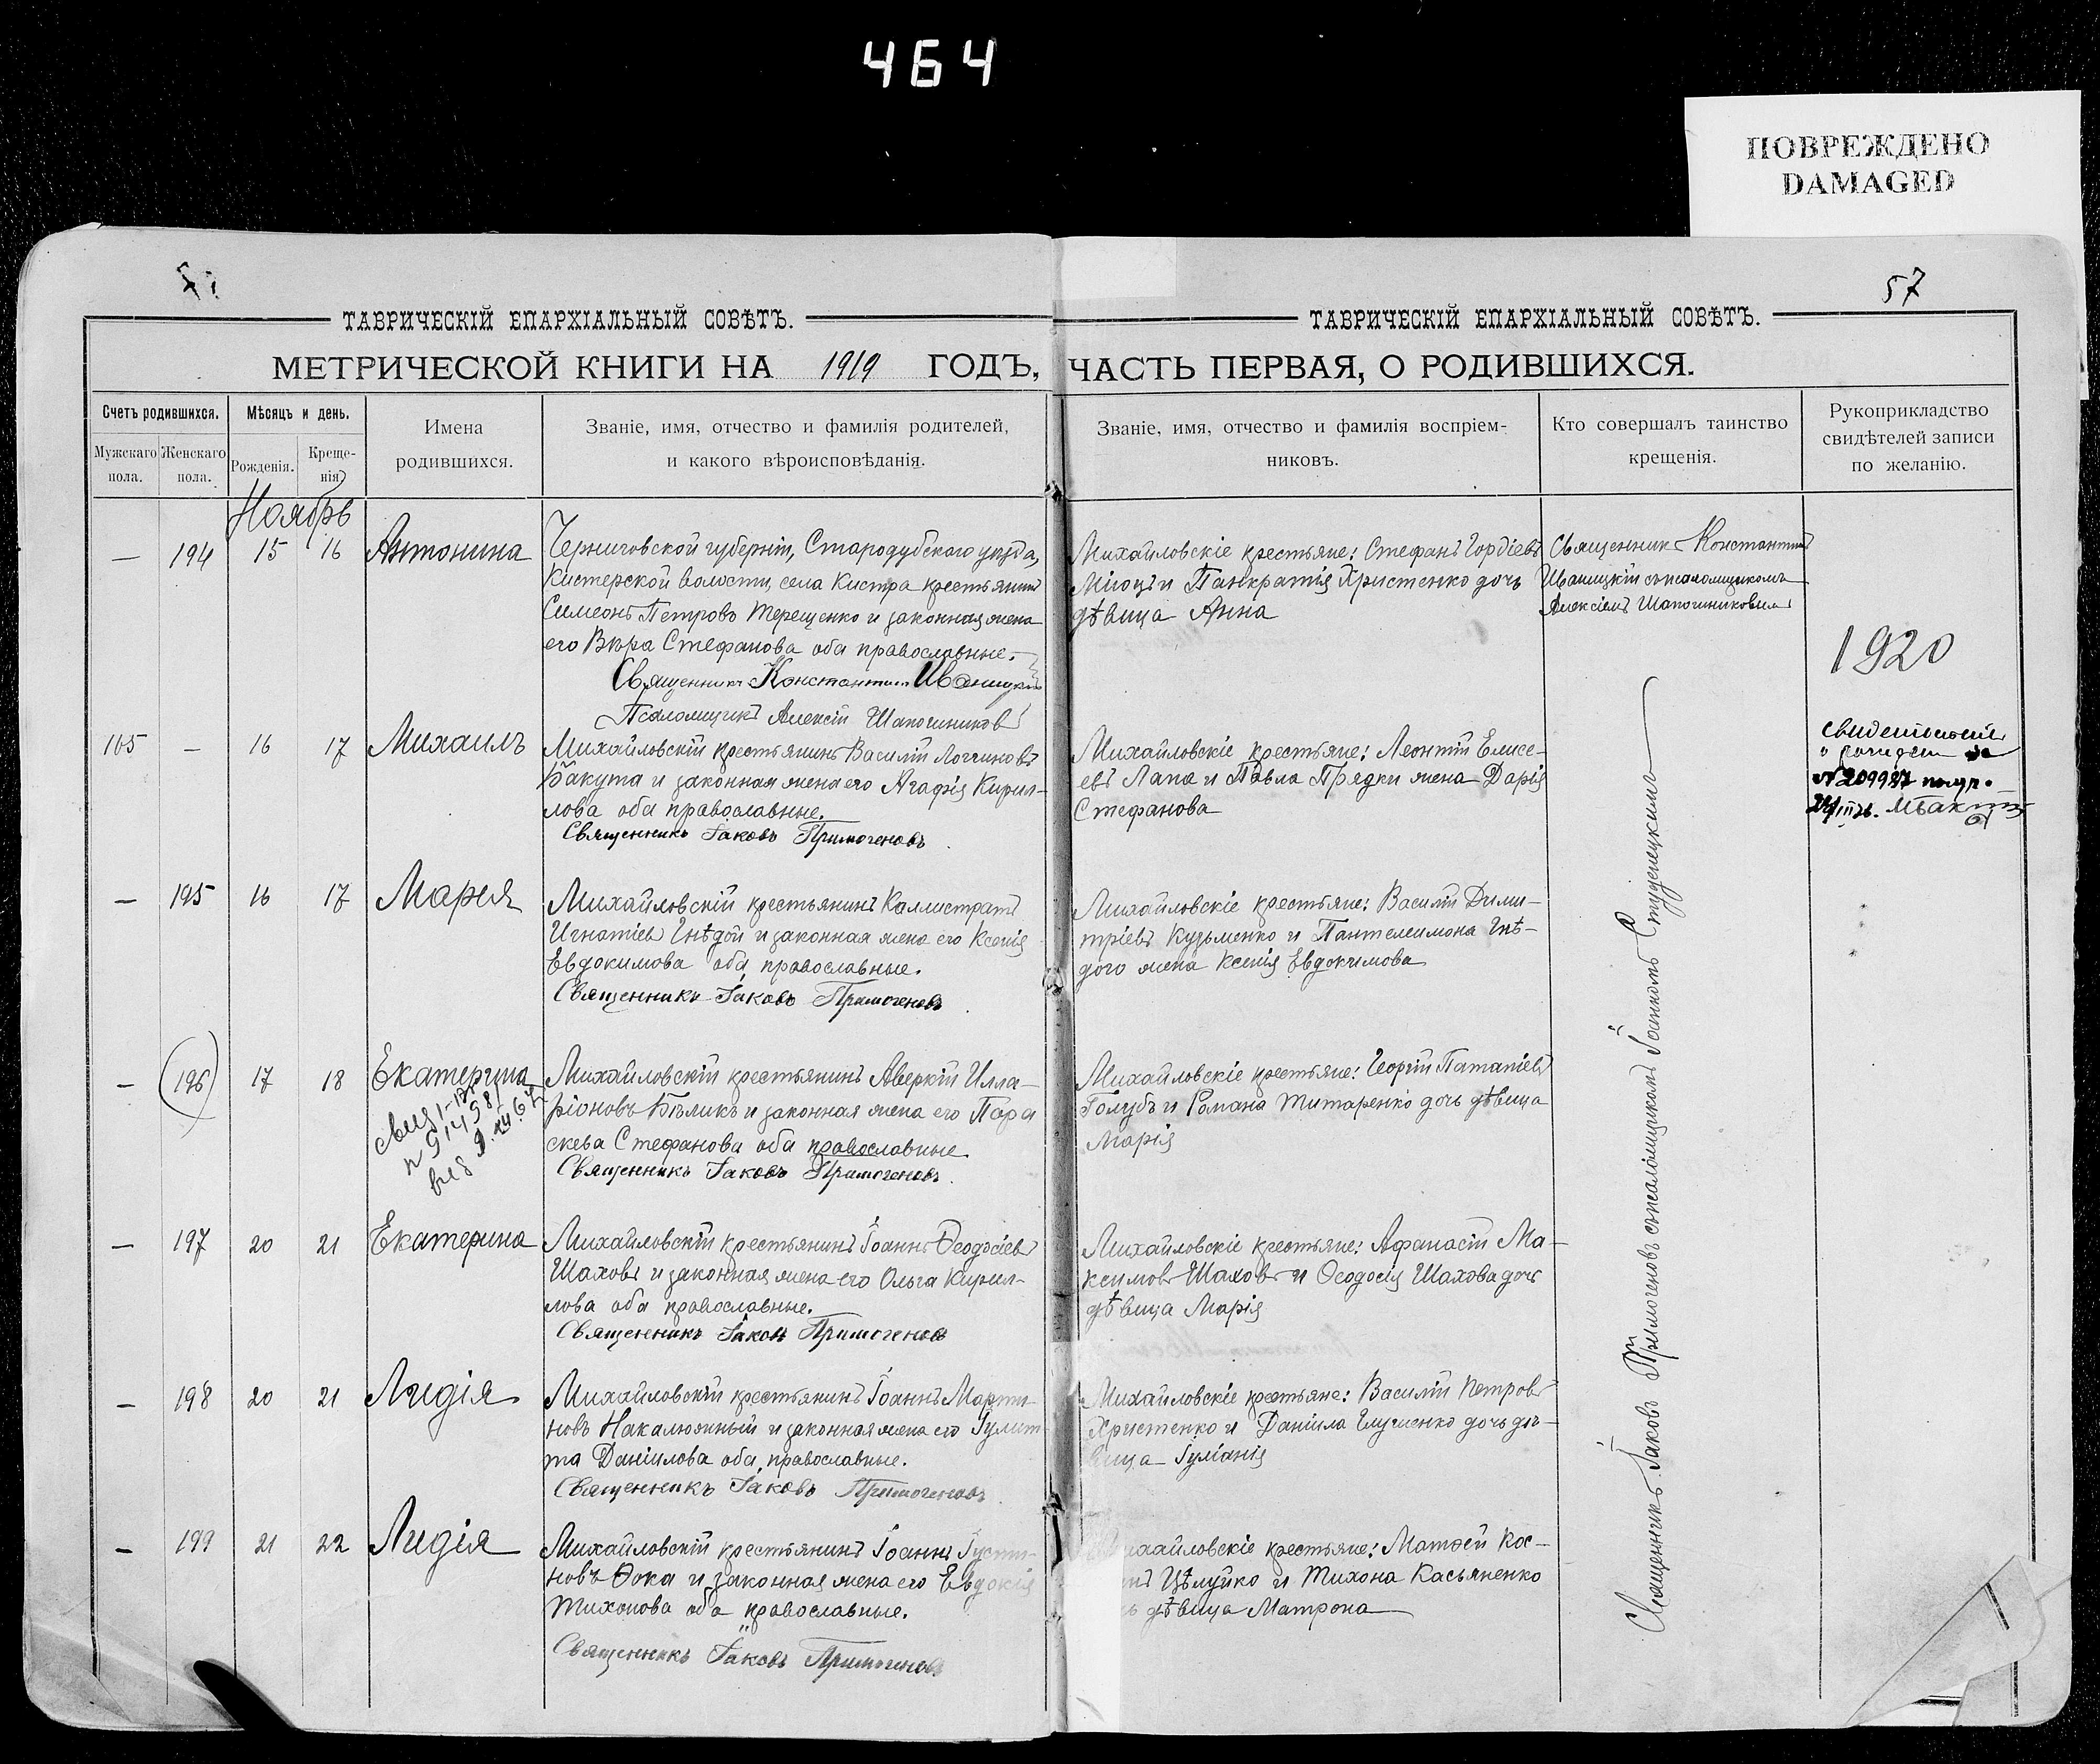 464
ПОВРЕЖДЕНО
DAMAGED
57
ТАВРИЧЕСКІЙ ЕПАРХІАЛЬНЫЙ СОВѢТЪ.
МЕТРИЧЕСКОЙ КНИГИ НА 1919 ГОДЪ,
Счетъ родившихся.
Мѣсяцъ и день.
Имена
родившихся.
Званіе, имя, отчество и фамилія родителей,
и какого вѣроисповѣданія.
Мужскаго
пола.
Женскаго
пола.
Рожденія.
Креще-
нія
Ноябрь
— 194 15 16 Антонина
Черниговской губерніи, Стародубскаго уѣзда,
Кистерской волости, села Кистра крестьянинъ
Симеонъ Петровъ Терещенко и законная жена
его Вѣра Стефанова оба православные.
Священникъ Константинъ Иваницкій
Псаломщикъ Алексій Шапошниковъ
165 — 16 17 Михаилъ
Михайловскій крестьянинъ Василій Логгиновъ
Бакута и законная жена его Агафія Кирил-
лова оба православные.
Священникъ Іаковъ Примогеновъ
— 195 16 17 Марія
Михайловскій крестьянинъ Каллистратъ
Игнатіевъ Гнѣдой и законная жена его Ксенія
Евдокимова оба православные.
Священникъ Іаковъ Примогеновъ
— 196 17 18 Екатерина
Михайловскій крестьянинъ Аверкій Илла-
ріоновъ Бѣликъ и законная жена его Пара
скева Стефанова оба православные
Священникъ Іаковъ Примогеновъ.
— 197 20 21 Екатерина
Михайловскій крестьянинъ Іоаннъ Ѳеодосіевъ
Шаховъ и законная жена его Ольга Кирил-
лова оба православные.
Священникъ Іаковъ Примогеновъ
— 198 20 21 Лидія
Михайловскій крестьянинъ Іоаннъ Марти-
новъ Накалюжный и законная жена его Іулит
та Даніилова оба православные.
Священникъ Іаковъ Примогеновъ
— 199 21 22 Лидія
Михайловскій крестьянинъ Іоаннъ Іусти-
новъ Ѳока и законная жена его Евдокія
Тихонова оба православные.
Священникъ Іаковъ Примогеновъ
ТАВРИЧЕСКІЙ ЕПАРХІАЛЬНЫЙ СОВѢТЪ.
ЧАСТЬ ПЕРВАЯ, О РОДИВШИХСЯ.
Званіе, имя, отчество и фамилія воспріем-
никовъ.
Кто совершалъ таинство
крещенія.
Рукоприкладство
свидѣтелей записи
по желанію.
Михайловскіе крестьяне: Стефанъ Гордіевъ
и Панкратія Христенко дочь
дѣвица Анна
Священникъ Константинъ
Иваницкій съ псаломщикомъ
Алексіемъ Шапошниковымъ
1920
Михайловскіе крестьяне: Леонтій Елисе-
евъ Лапа и Павла Прядки жена Дарія
Стефанова
№ 209987
Михайловскіе крестьяне: Василій Дими-
тріевъ Кузьменко и Пантелеимона Гнѣ-
дого жена Ксенія Евдокимова
Михайловскіе крестьяне: Георгій Патапіевъ
Голубъ и Романа Титаренко дочь дѣвица
Марія
Михайловскіе крестьяне: Аѳанасій Ма-
ксимовъ Шаховъ и Ѳеодосія Шахова дочь
дѣвица Марія
Михайловскіе крестьяне: Василій Петровъ
Христенко и Даніила Глущенко дочь дѣ-
вица Іуліанія
Михайловскіе крестьяне: Матѳей Кос-
Цѣлуйко и Тихона Касьяненко
дѣвица Матрона
Священникъ Іаковъ Примогеновъ съ псаломщикомъ Іоанномъ Студенецкимъ